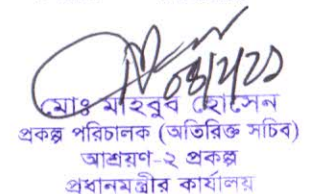 ০৪/২/২১
মোঃ মাহবুব হোসেন
প্রকল্প পরিচালক (অতিরিক্ত সচিব)
আশ্রয়ণ-২ প্রকল্প
প্রধানমন্ত্রীর কার্যালয়